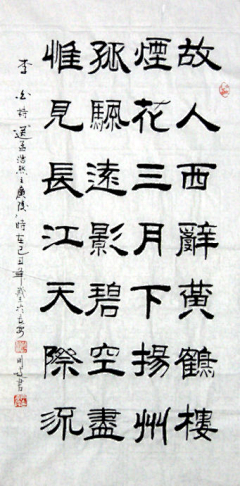 故人西辭黄鶴樓
煙花三月下揚州
孤颿遠影碧空盡
惟見長江天際流
李白詩送孟浩然之廣陵時在己丑年